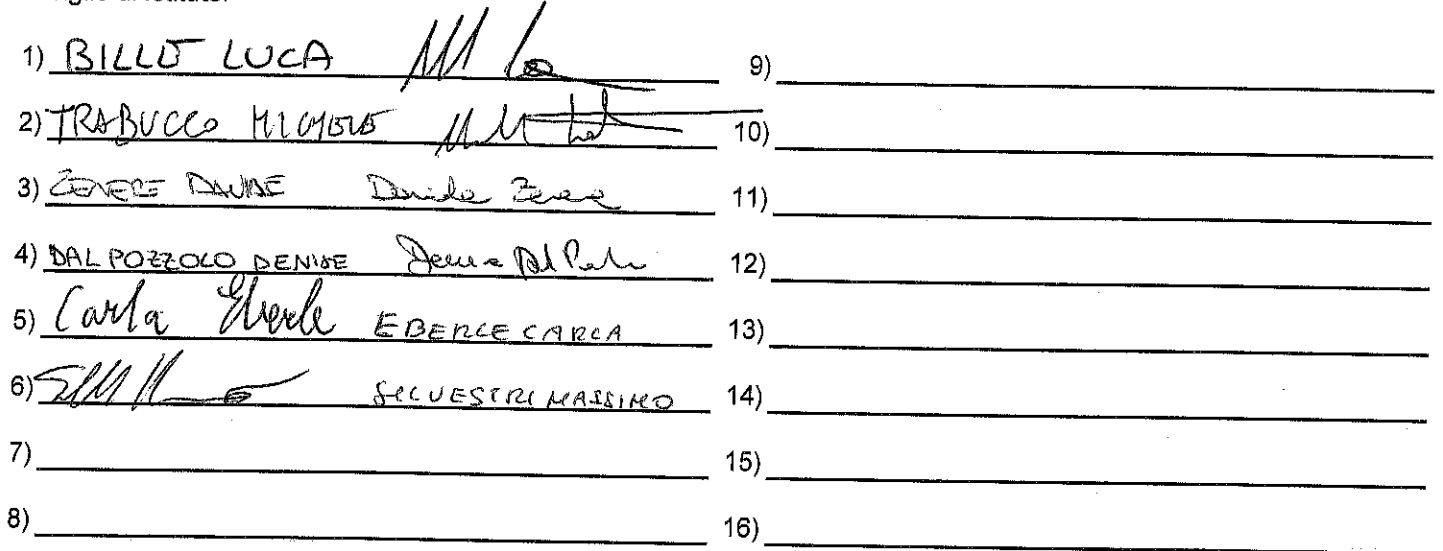 1) BILLO LUCA
2) TRABUCCO MICHELE
3) ZENERE DAVIDE Davide Zenere
4) DAL POZZOLO DENISE Denise Dal Pozzolo
5) Carla Eberle EBERLE CARLA
6) SILVESTRI MASSIMO
7)
8)
9)
10)
11)
12)
13)
14)
15)
16)